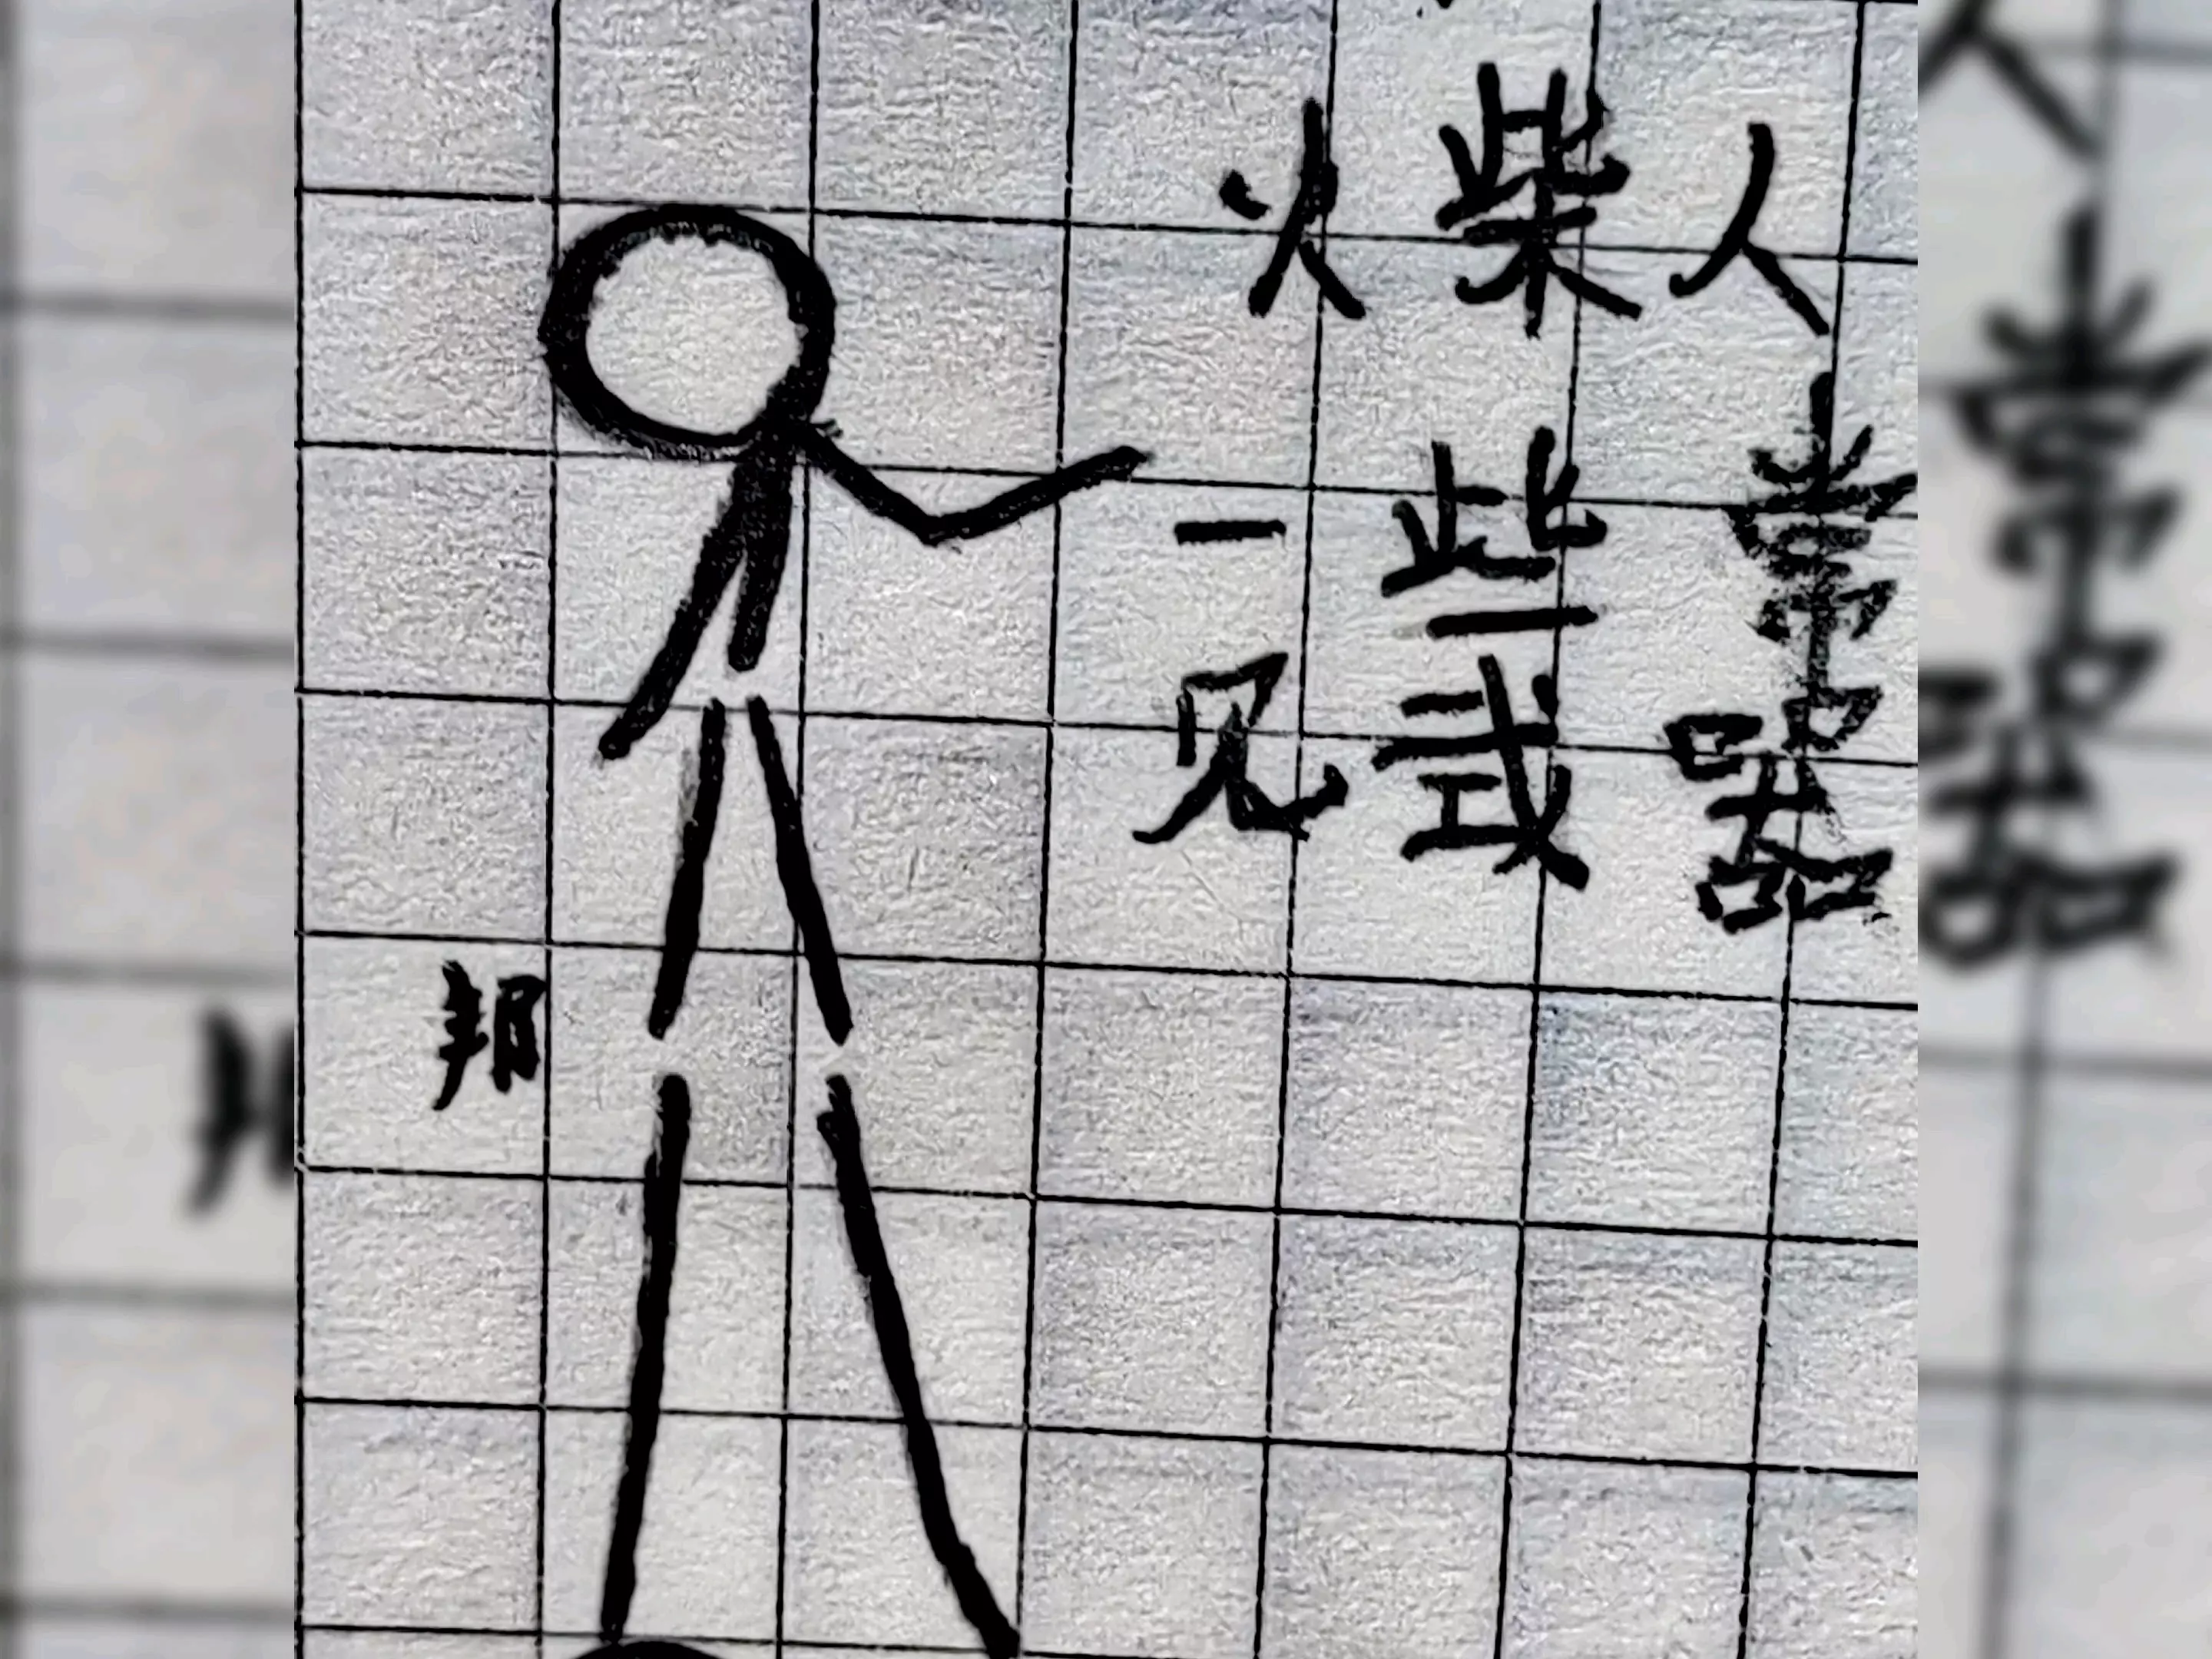 火柴人
一些常
见武器